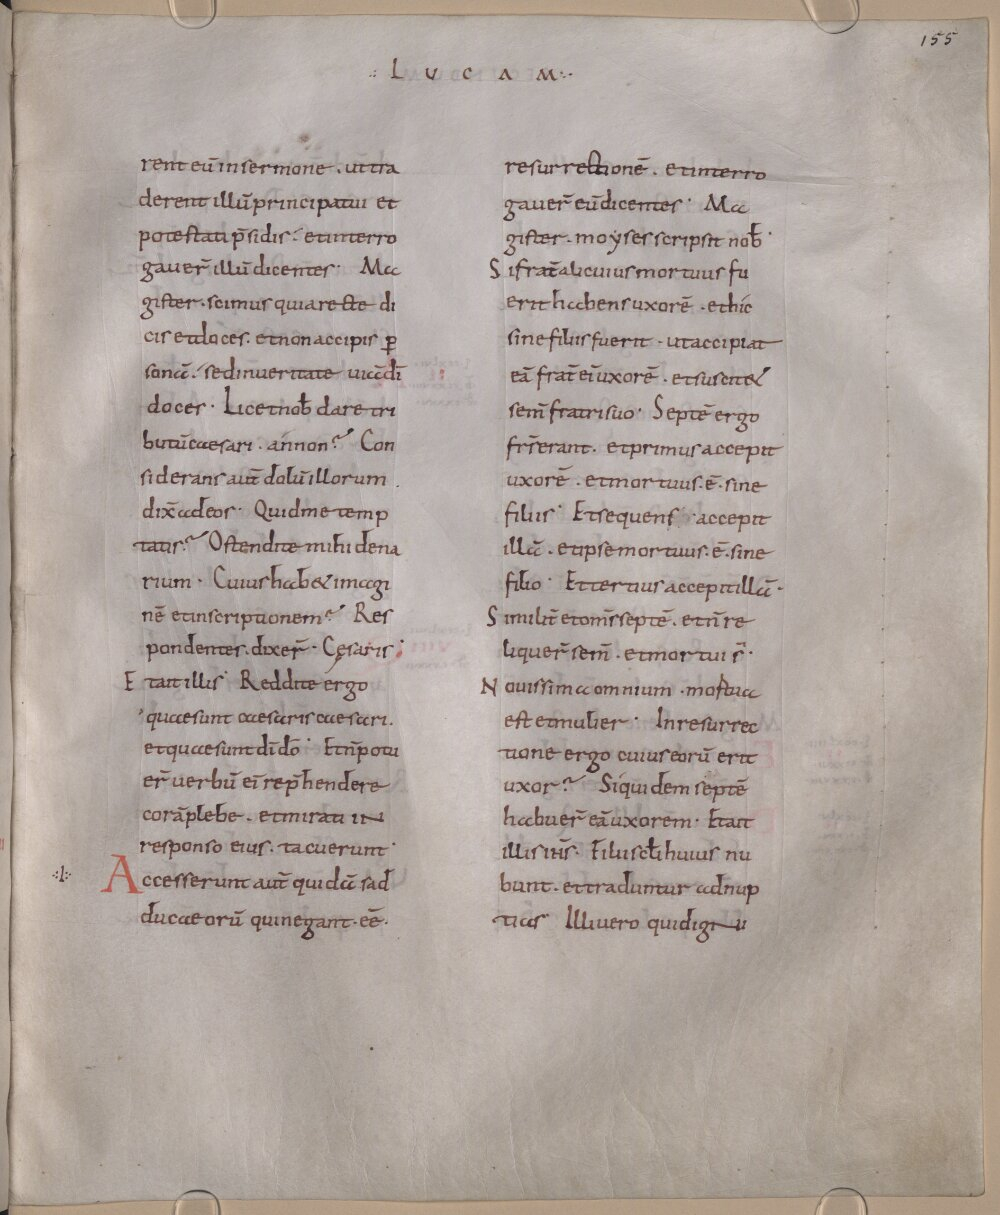 155
LUCAM
rent eū in sermone . ut tra
derent illū principatui et
potestati p̄sidis . et interro
gauer̄ illū dicentes · Ma
gister . scimus quia recte di
cis et doces . et non accipis ꝑ
sonā . sed in ueritate uiā di̅
doces · Licet nob̄ dare tri
butū caesari . an non ? Con
siderans aut̄ dolū illorum .
dix̄ ad eos · Quid me temp
tatis ? Ostendite mihi dena
rium · Cuius habet imagi
nē et inscriptionem ? Res
pondentes . dixer̄ · Cęsaris ·
Et ait illis · Reddite ergo
quae sunt caesaris caesari .
et quae sunt di̅ do̅ · Et n̄ potu
er̄ uerbū ei̅ rep̄hendere
corā plebe . et mirati in
responso eius . tacuerunt ·
·l·
Accesserunt aut̄ quidā sad
ducaeorū qui negant . ee̅ .
resurrectionē . et interro
gauer̄ eū dicentes · Ma
gister . moẏses scripsit nob̄ ·
Si frat̄ alicuius mortuus fu
erit habens uxorē . et hic
sine filiis fuerit . ut accipiat
eā frat̄ ei̅ uxorē . et suscitet
sem̄ fratri suo · Septē ergo
fr̄s erant . et primus accepit
uxorē . et mortuus . ē . sine
filiis · Et sequens accepit
illā . et ipse mortuus . ē . sine
filio · Et tertius accepit illā ·
Similit̄ et om̄s septē . et n̄ re
liquer̄ sem̄ . et mortui s̄ ·
Nouissima omnium . mortua
est et mulier · In resurrec
tione ergo cuius eorū erit
uxor ? Siquidem septē
habuer̄ eā uxorem · Et ait
illis ih̄s · Filii scl̄i huius nu
bunt . et traduntur ad nup
tias · Illi uero qui digni